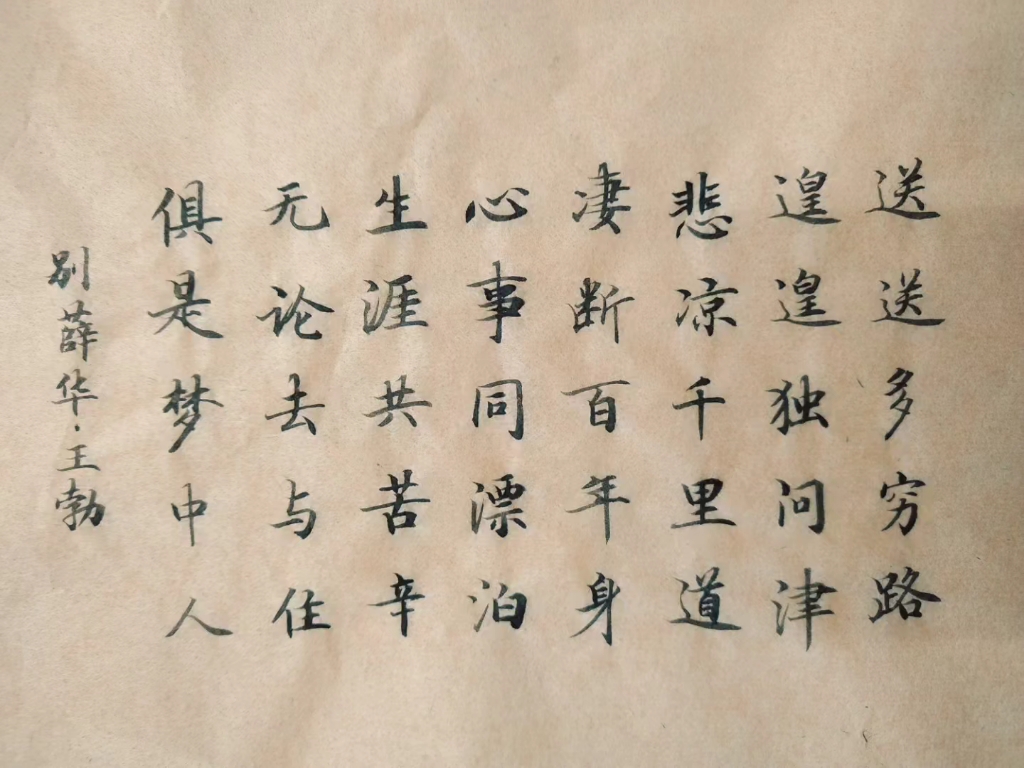 送送多穷路
遑遑独问津
悲凉千里道
凄断百年身
心事同漂泊
生涯共苦辛
无论去与住
俱是梦中人
别薛华·王勃